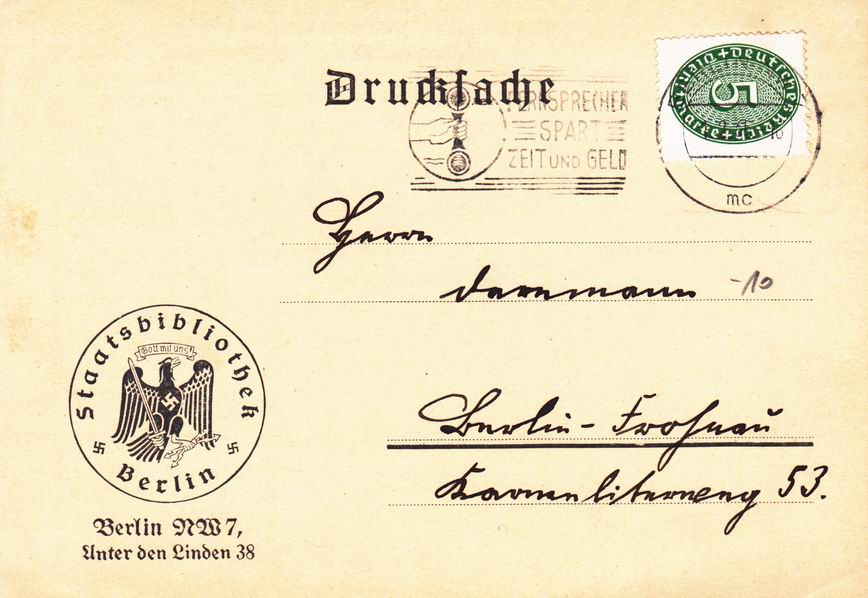 Drucksache
FERNSPRECHER
SPART
ZEIT UND GELD
Deutsches Reich + Dienstmarke +
5
mc
Herrn
-10
Staatsbibliothek
Gott mit uns
Berlin
Berlin-Frohnau
Karmeliterweg 53.
Berlin NW 7,
Unter den Linden 38